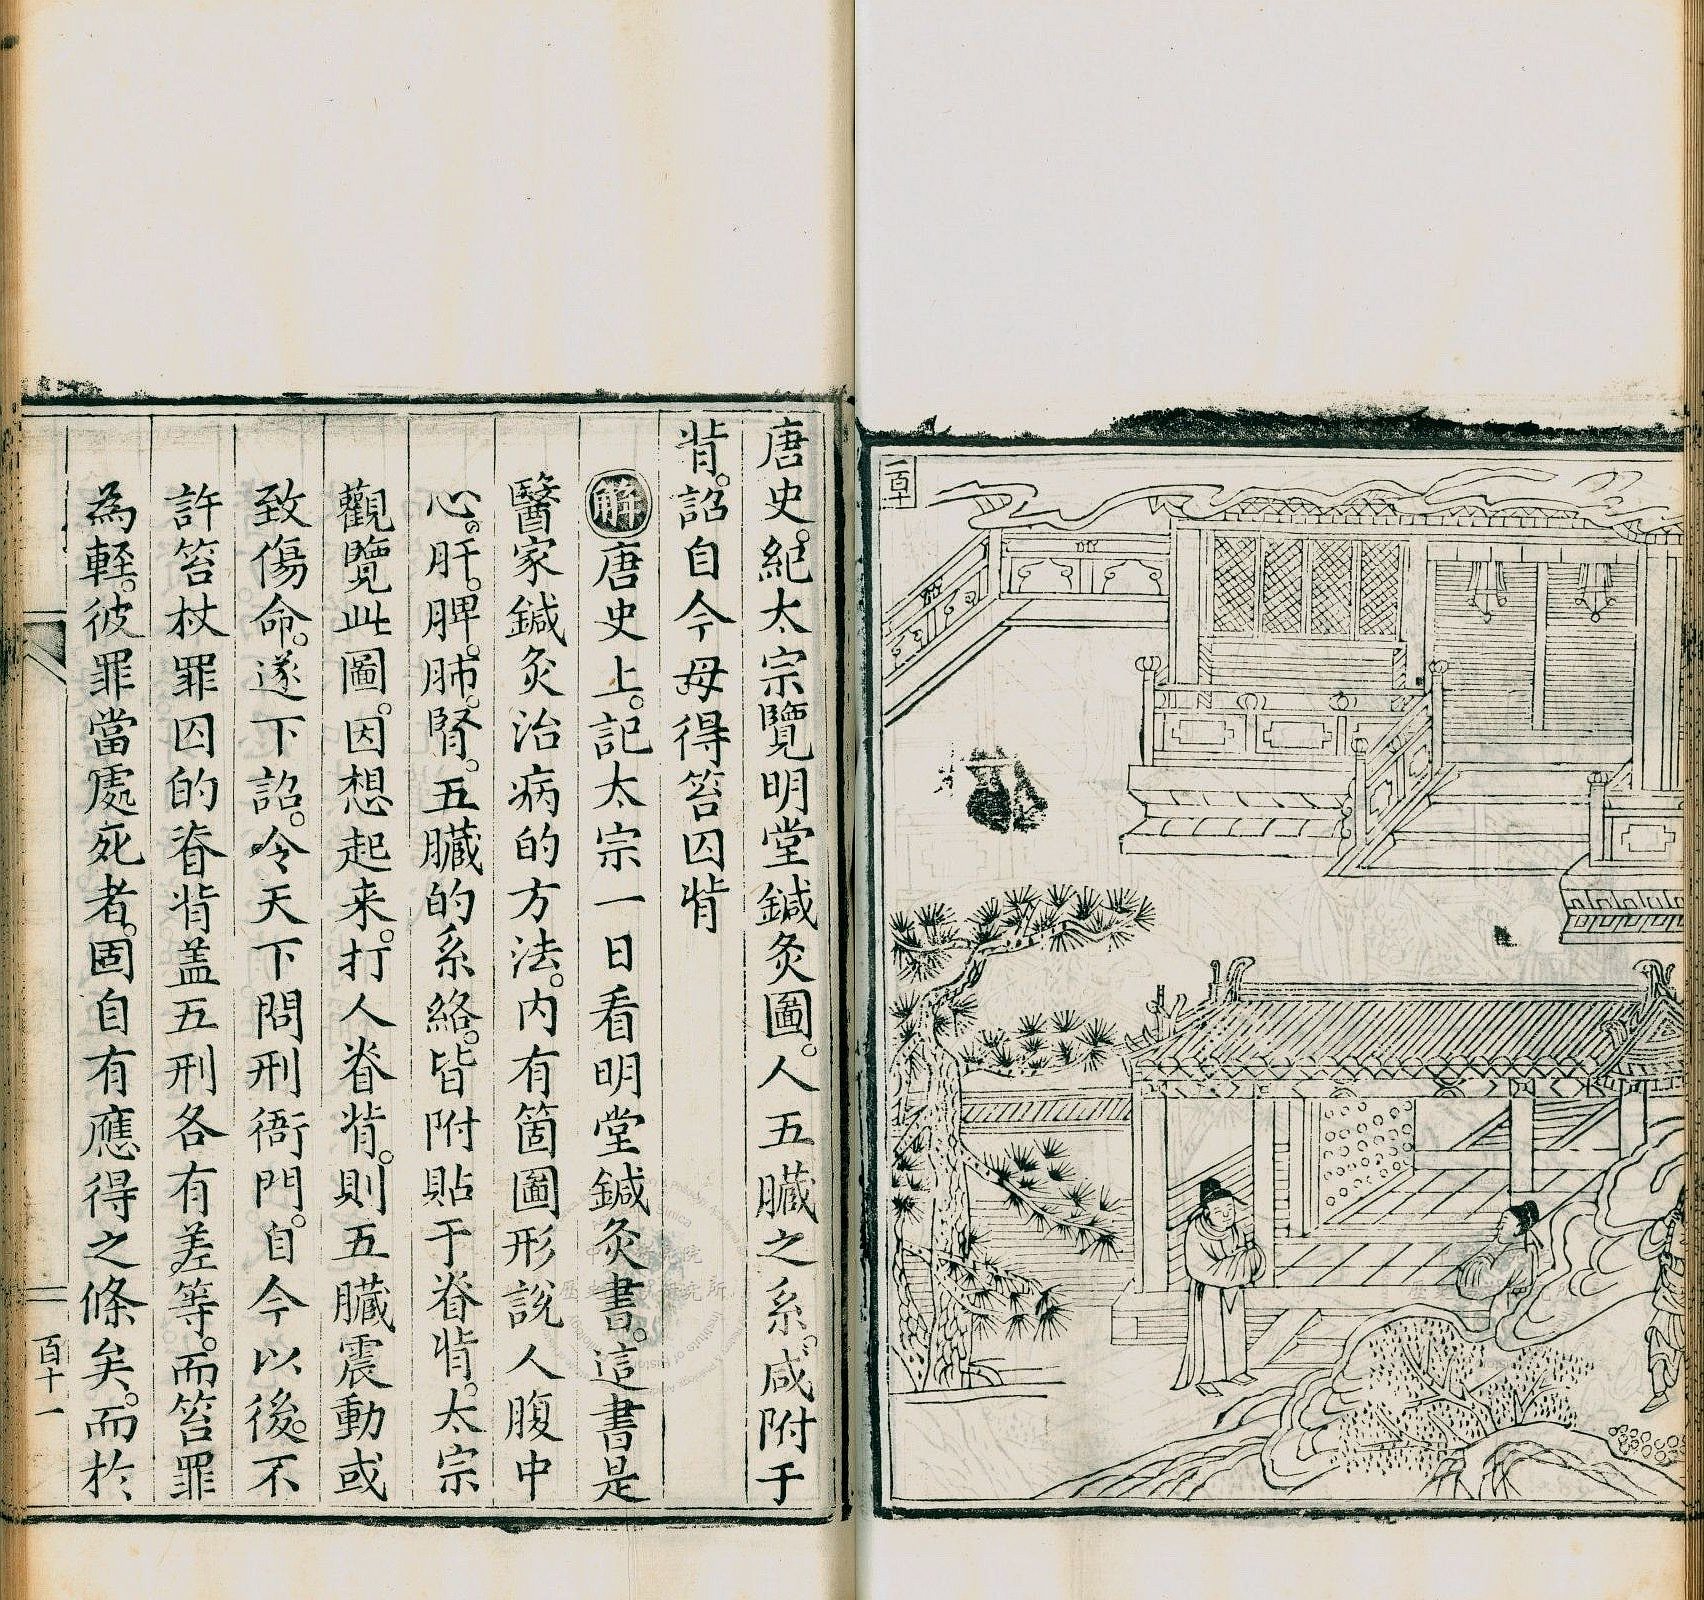 一百十
唐史。紀太宗覽明堂鍼灸圖。人五臟之系。咸附于
背。詔自今毋得笞囚背
解唐史上。記太宗一日看明堂鍼灸書。這書是
醫家鍼灸治病的方法。內有箇圖形說人腹中
心。肝。脾。肺。腎。五臟的系絡。皆附貼于脊背。太宗
觀覽此圖。因想起來。打人脊背。則五臟震動或
致傷命。遂下詔。令天下問刑衙門。自今以後。不
許笞杖罪囚的脊背盖五刑各有差等。而笞罪
為輕。彼罪當處死者。固自有應得之條矣。而於
百十一